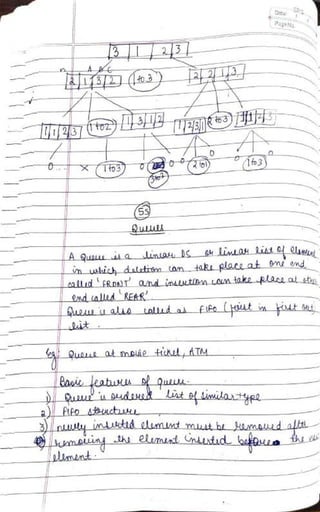 Date:
Page No.
3 | 1 | 2 | 3
n A B C
2 | 1 | 3 | 2 1 to 3 2 | 2 | 1 | 3
1 | 1 | 2 | 3 1 to 2 1 | 3 | 1 | 2 1 | 2 | 3 | 1 2 to 3 1 | 1 | 2 | 3
0 ... x 1 to 3 0 0 0 2 to 1 0 0 1 to 3 0
3 to 2
Queues
A Queue is a linear DS or linear list of element
in which deletion can take place at one end
called 'FRONT' and insertion can take place at other
end called 'REAR'
Queue is also called as FIFO (first in first out
list.
Eg: Queue at movie ticket, ATM
Basic features of queue-
1) Queue is ordered list of similar type
2) FIFO structure
3) newly inserted element must be removed after
removing the element inserted before the
element.